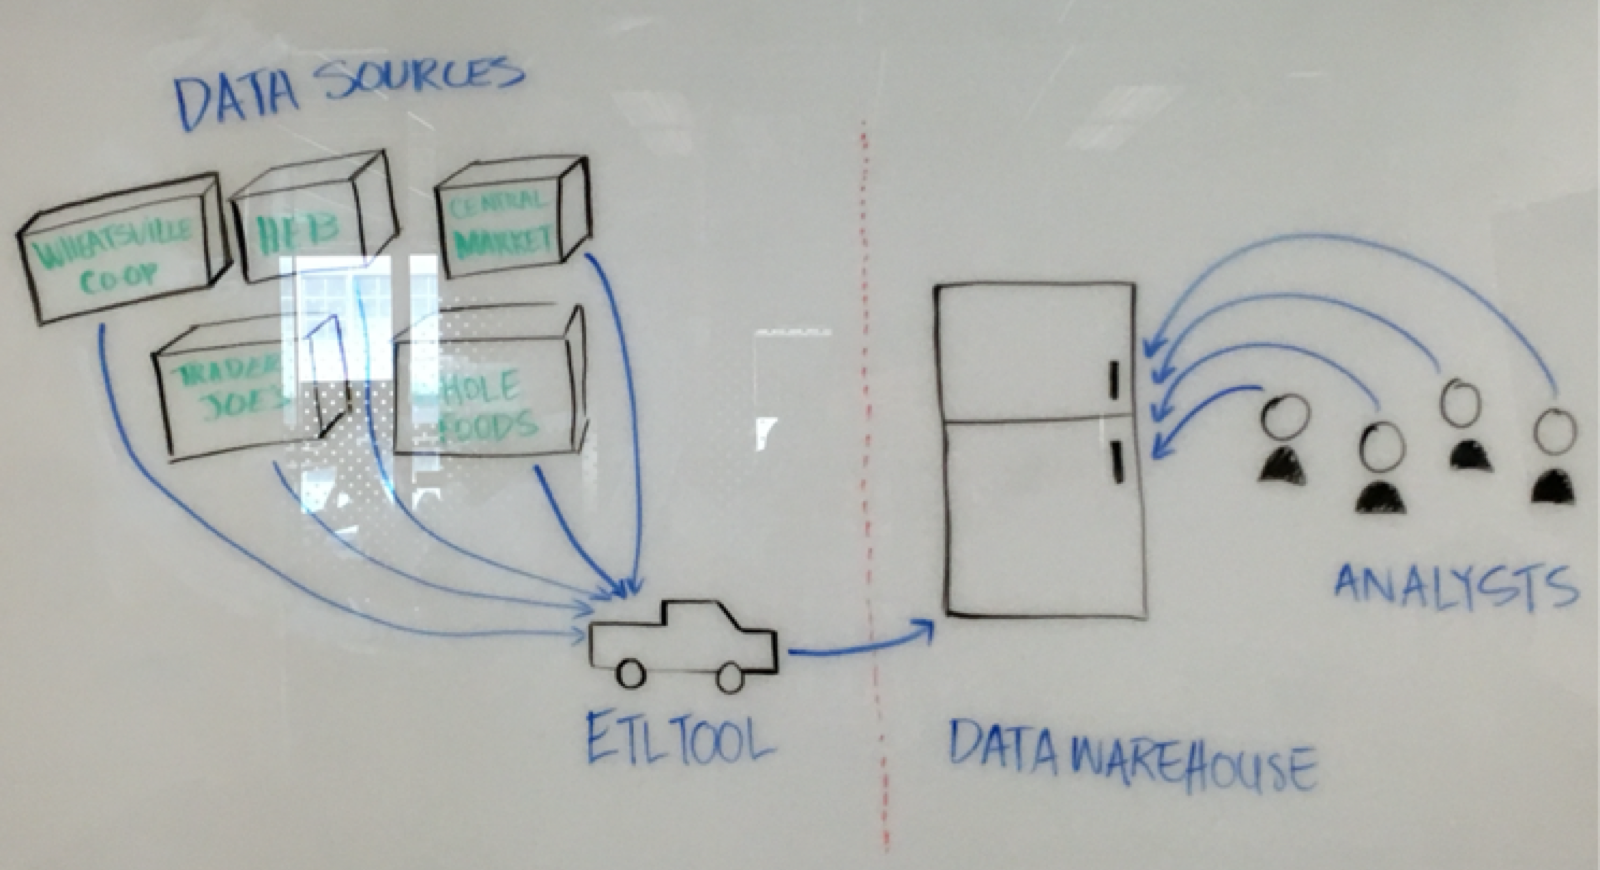 DATA SOURCES
WHEATSVILLE
CO-OP
HEB
CENTRAL
MARKET
TRADER
JOE'S
HOLE
FOODS
ETL TOOL
DATA WAREHOUSE
ANALYSTS